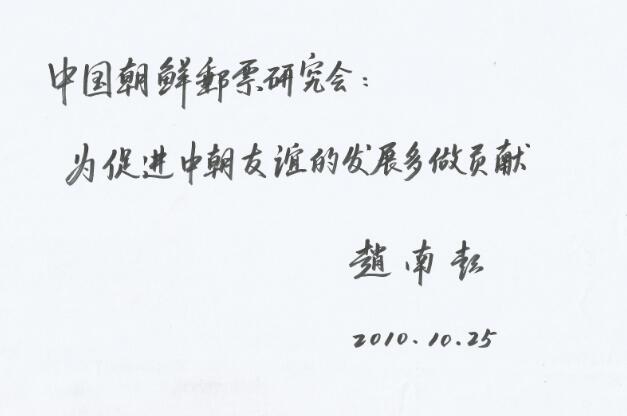 中国朝鲜郵票研究会：
为促进中朝友谊的发展多做贡献
趙南起
2010.10.25